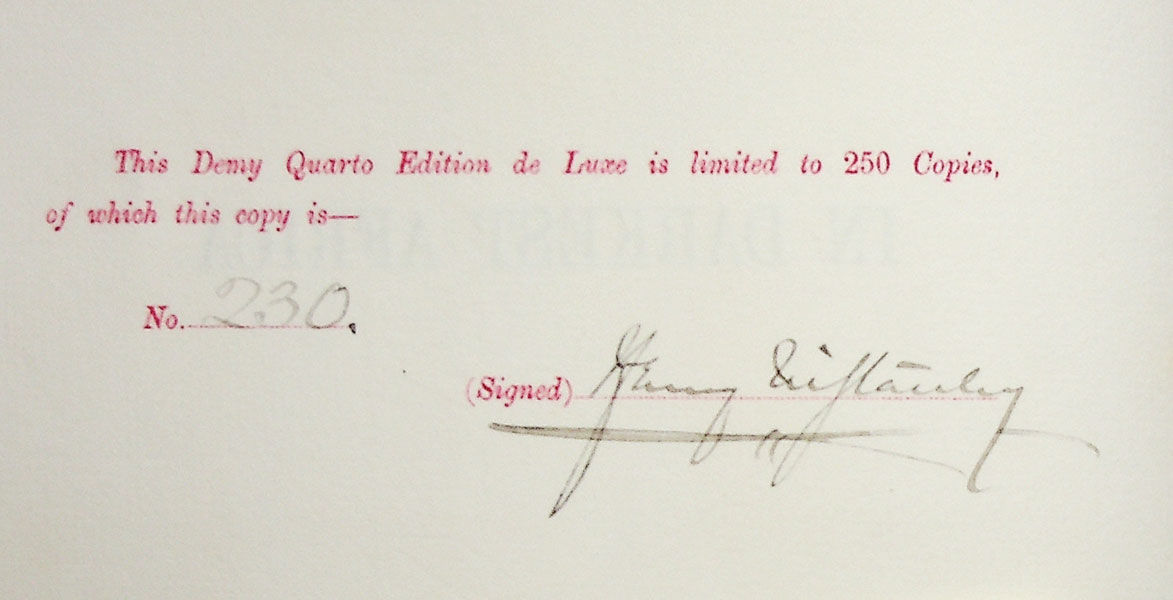 This Demy Quarto Edition de Luxe is limited to 250 Copies,
of which this copy is—
No. 230.
(Signed) Henry M. Stanley